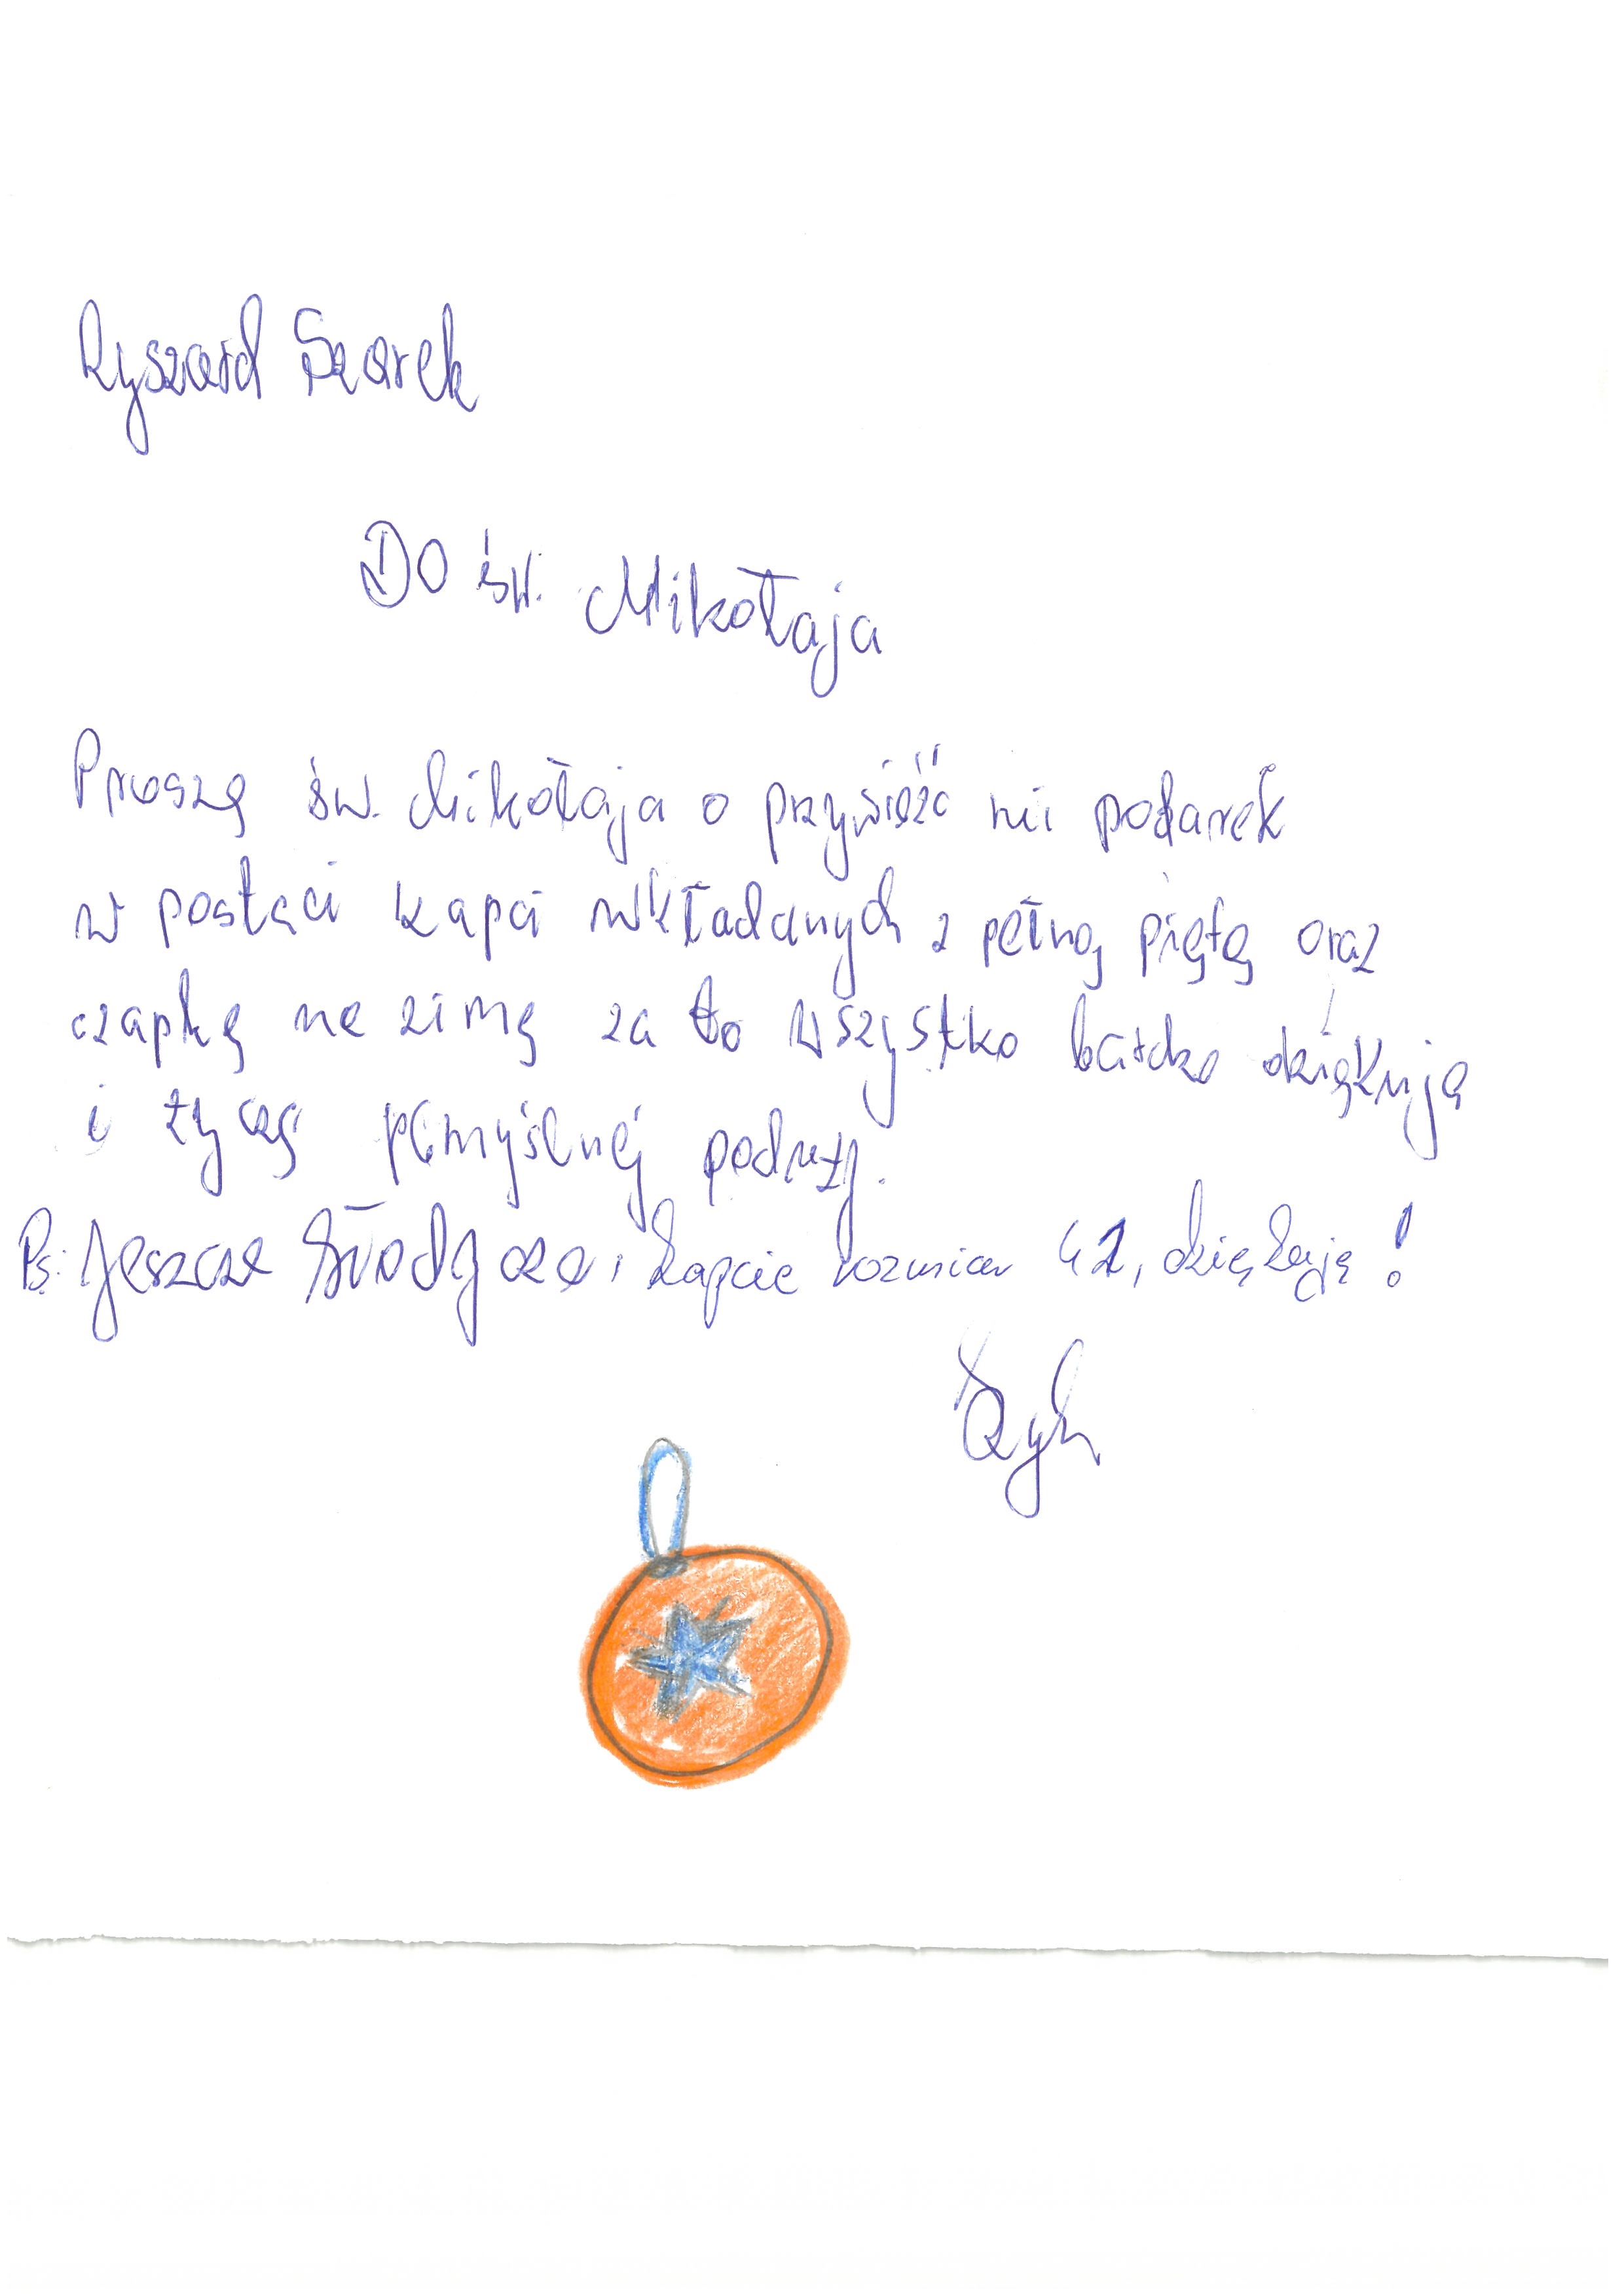 Ryszard Szarek
DO św. Mikołaja
Proszę św. Mikołaja o przywieźć mi podarek
w postaci kapci wkładanych z pełną piętą oraz
czapkę na zimę za to wszystko bardzo dziękuję
i życzę pomyślnej podruży.
Ps: Jeszcze słodycze, kapcie rozmiar 42, dziękuję!